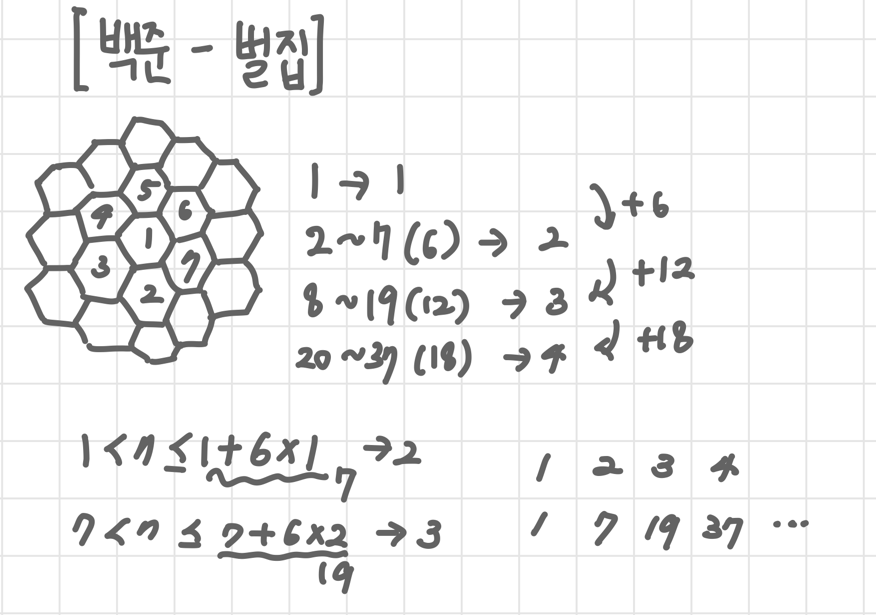 [백준 - 벌집]
5
4 6
1
3 7
2
1 → 1
+6
2~7(6) → 2
+12
8~19(12) → 3
+18
20~37(18) → 4
1 < n ≤ 1+6×1 → 2
7
7 < n ≤ 7+6×2 → 3
19
1 2 3 4
1 7 19 37 ...